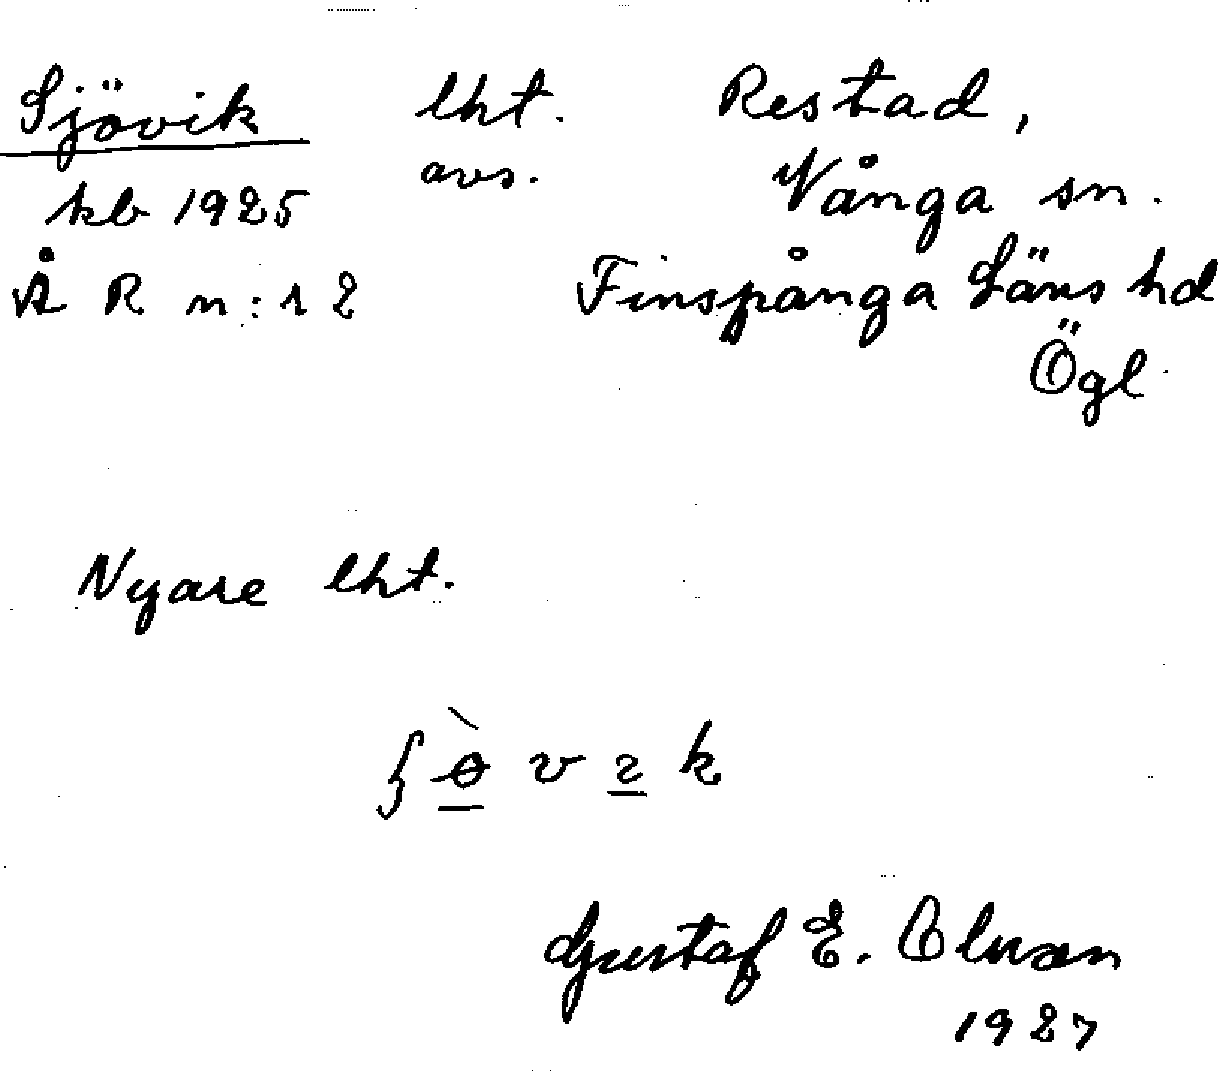 Sjövik lht. Restad,
kb 1925 avs. Vånga sn.
Å R n:1 2 Finspånga Läns hd
Ögl.
Nyare lht.
Gustaf E. Olsson
1927